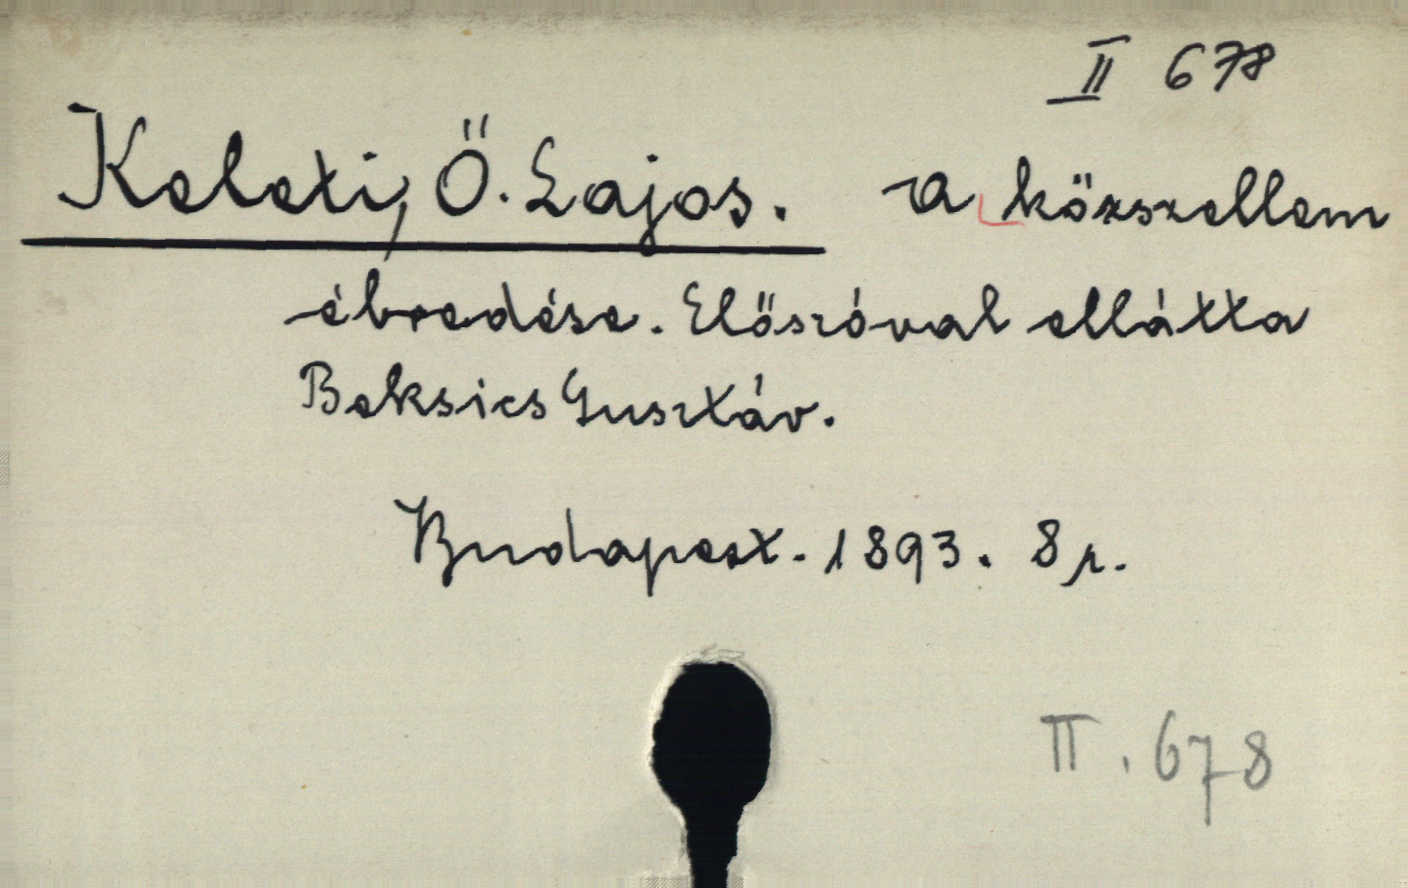 II 678
Keleti, Ő. Lajos. a közszellem
ébredése. Előszóval ellátta
Beksics Gusztáv.
Budapest. 1893. 8 r.
II. 678